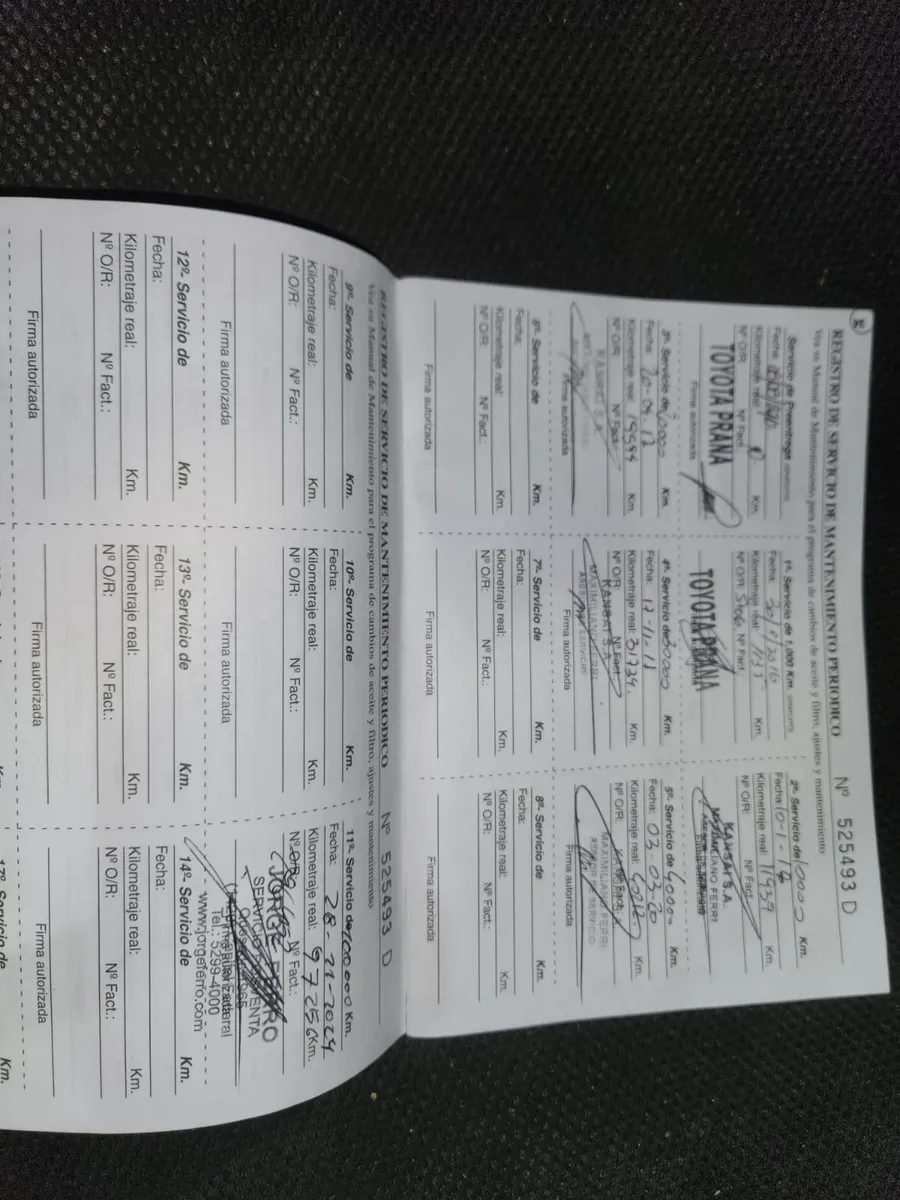 REGISTRO DE SERVICIO DE MANTENIMIENTO PERIODICO Nº 525493 D
Vea su Manual de Mantenimiento para el programa de cambios de aceite y filtro, ajustes y mantenimiento
Servicio de Preentrega
Fecha:
Kilometraje real: Km.
Nº O/R: Nº Fact.
TOYOTA PRANA
Firma autorizada
1º- Servicio de 1,000 Km.
Fecha:
Kilometraje real: Km.
Nº O/R: Nº Fact.
TOYOTA PRANA
2º- Servicio de 10000 Km.
Fecha: 10-1-17
Kilometraje real: Km.
Nº O/R: Nº Fact.
KANSAI S.A.
MAXIMILIANO FERRI
3º- Servicio de 20000 Km.
Fecha:
Kilometraje real: 19588 Km.
Nº O/R: Nº Fact.:
KANSAI S.A.
Firma autorizada
4º- Servicio de 30000 Km.
Fecha: 17-11-17
Kilometraje real: 31734 Km.
Nº O/R: Nº Fact.:
KANSAI S.A.
MAXIMILIANO FERRI
ASESOR SERVICIO
Firma autorizada
5º- Servicio de 40000 Km.
Fecha: 03-03-20
Kilometraje real: 40212 Km.
Nº O/R: Nº Fact.:
KANSAI S.A.
MAXIMILIANO FERRI
ASESOR SERVICIO
Firma autorizada
6º- Servicio de Km.
Fecha:
Kilometraje real: Km.
Nº O/R: Nº Fact.:
Firma autorizada
7º- Servicio de Km.
Fecha:
Kilometraje real: Km.
Nº O/R: Nº Fact.:
Firma autorizada
8º- Servicio de Km.
Fecha:
Kilometraje real: Km.
Nº O/R: Nº Fact.:
Firma autorizada
REGISTRO DE SERVICIO DE MANTENIMIENTO PERIODICO Nº 525493 D
Vea su Manual de Mantenimiento para el programa de cambios de aceite y filtro, ajustes y mantenimiento
9º- Servicio de Km.
Fecha:
Kilometraje real: Km.
Nº O/R: Nº Fact.:
Firma autorizada
10º- Servicio de Km.
Fecha:
Kilometraje real: Km.
Nº O/R: Nº Fact.:
Firma autorizada
11º- Servicio de 100000 Km.
Fecha: 28-11-2024
Kilometraje real: 97256 Km.
Nº O/R: Nº Fact.:
JORGE FERRO
SERVICIO POSVENTA
Firma autorizada
Tel.: 5299-4000
www.jorgeferro.com
12º- Servicio de Km.
Fecha:
Kilometraje real: Km.
Nº O/R: Nº Fact.:
Firma autorizada
13º- Servicio de Km.
Fecha:
Kilometraje real: Km.
Nº O/R: Nº Fact.:
Firma autorizada
14º- Servicio de Km.
Fecha:
Kilometraje real: Km.
Nº O/R: Nº Fact.:
Firma autorizada
Km.
17º- Servicio de Km.